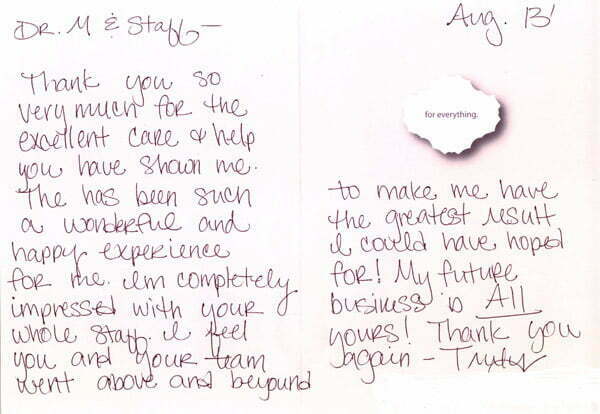 Dr. M & Staff —
Thank you so
very much for the
excellent care & help
you have shown me.
The has been such
a wonderful and
happy experience
for me. I'm completely
impressed with your
whole staff. I feel
you and your team
went above and beyound
Aug. 13'
for everything.
to make me have
the greatest result
I could have hoped
for! My future
business is All
yours! Thank you
again –